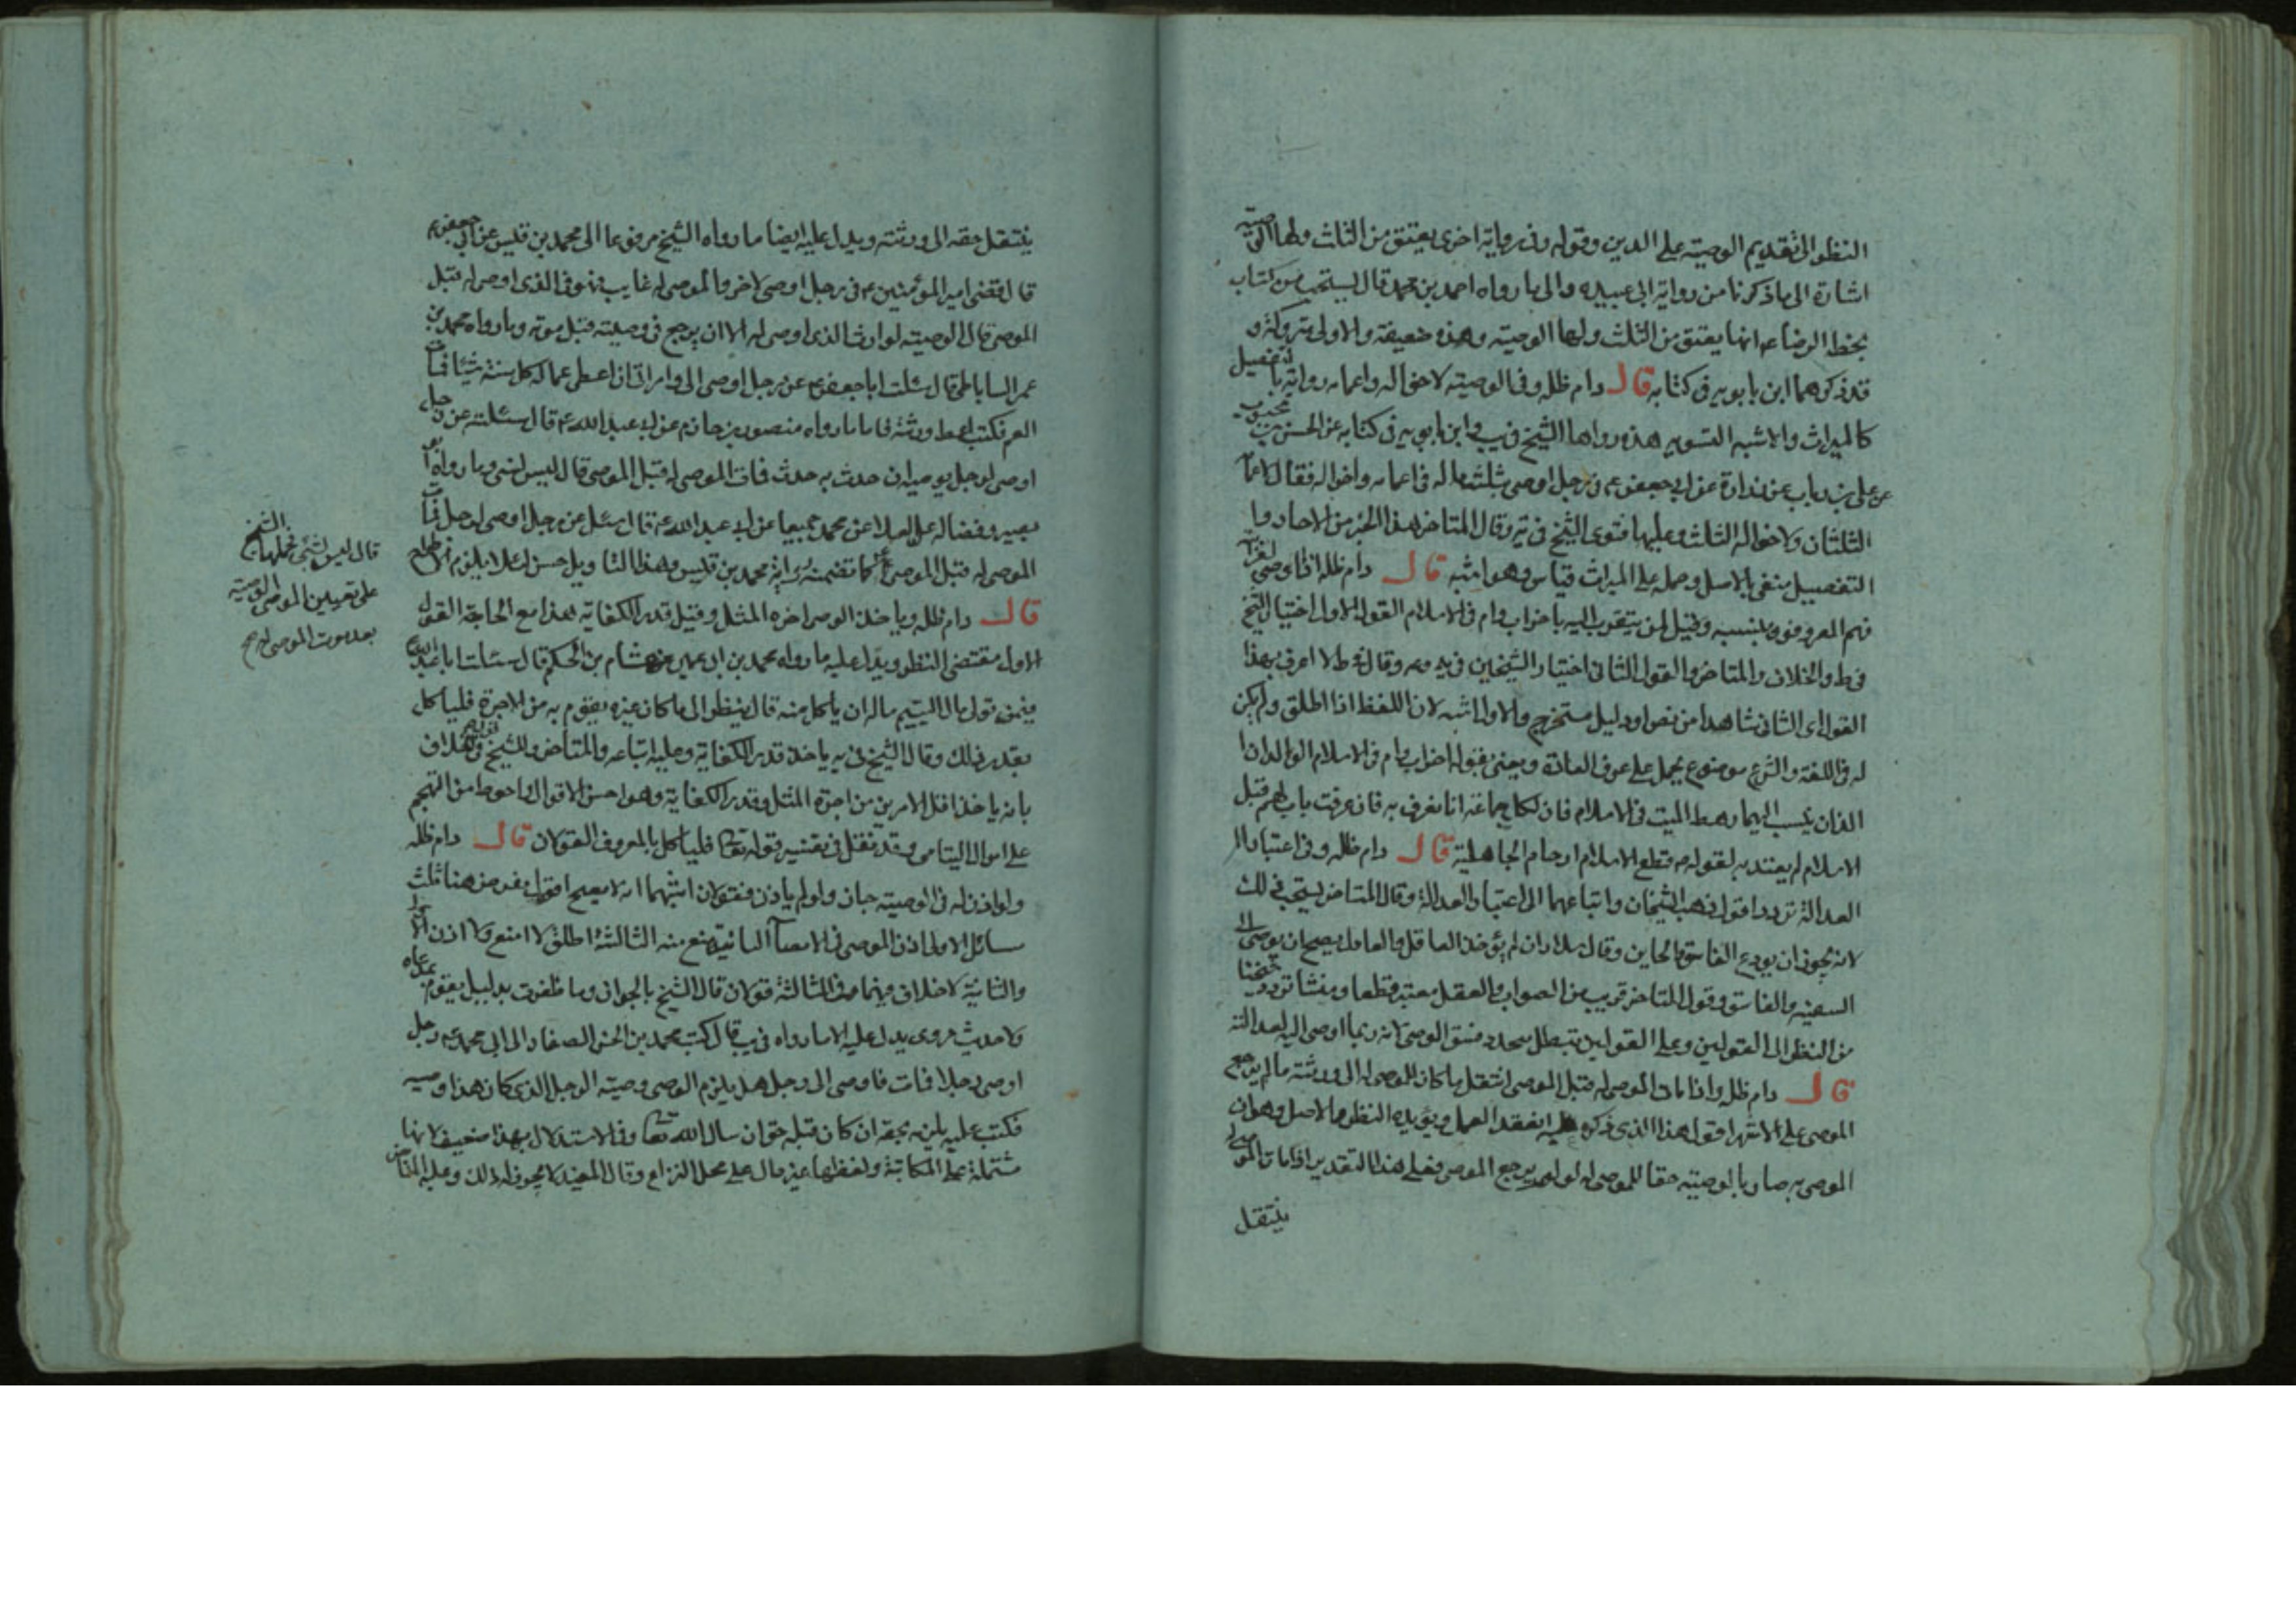 النظر الى تقديم الوصية على الدين وقوله وفي رواية اخرى يعتق من الثلث ولها الوصية
اشارة الى ما ذكرنا من رواية ابي عبيده والى ما رواه احمد بن محمد قال يستحب من كتاب
بخط الرضا عه انها يعتق من الثلث ولها الوصية وهذه ضعيفة والاولى متروكة و
قد ذكرهما ابن بابويه في كتابه قال دام ظله وفي الوصية لاخواله واعمامه رواية بالتفصيل
كالميراث والاشبه التسويه هذه رواها الشيخ في يب وابن بابويه في كتابه عن الحسن بن محبوب
عن علي بن رياب عن زرارة عن ابي جعفر عه في رجل اوصى بثلث ماله في اعمامه واخواله فقال لاعمامه
الثلثان ولاخواله الثلث وعليها فتوى الشيخ في ية وقال المتاخر هذا الخبر من الاحاد وا
التفصيل منفي بالاصل وحمله على الميراث قياس وهو اشبه قال دام ظله اذا اوصى لقرابته
فهم المعروفون بنسبه وقيل لمن يتقرب اليه باخر اب وام في الاسلام القول الاول اختيار الشيخ
في ط والخلاف والمتاخر والقول الثاني اختيار الشيخين في يه وعه وقال في ط لا اعرف بهذا
القول اى الثاني شاهدا من نص او دليل مستخرج والاول اشبه لان اللفظ اذا اطلق ولم يكن
له في اللغة والشرع موضوع يحمل على عرف العادة ويعني بقوله اخر اب وام في الاسلام الوالدان ا
اللذان ينسب اليهما رهط الميت في الاسلام فان لكل جماعة ابا تعرف به فان عرفت باب لهم قبل
الاسلام لم يعتد به لقوله عم قطع الاسلام ارحام الجاهلية قال دام ظله وفي اعتبار ا
العدالة تردد اقول ذهب الشيخان واتباعهما الى اعتبار العدالة وقال المتاخر يستحب ذلك
لانه يجوز ان يودع الفاسق والخاين وقال سلار ان لم يوخذ العاقل والعامل يصح ان يوصى الى
السفيه والفاسق وقول المتاخر قريب من الصواب والعقل معتبر قطعا ومنشا تردد شيخنا
من النظر الى القولين وعلى القولين تبطل بتجدد فسق الوصى لانه ربما اوصى اليه لعدالته
قال دام ظله واذا مات الموصى له قبل الموصى انتقل ما كان للموصى له الى ورثته ما لم يرجع
الموصى على الاشهر اقول هذا الذي ذكره عليه انعقد العمل ويؤيده النظر والاصل وهو ان
الموصى به صار بالوصية حقا للموصى له لو لم يرجع الموصى فعلى هذا التقدير اذا مات الموصى له
ينتقل
ينتقل حقه الى ورثته ويدل عليه ايضا ما رواه الشيخ مرفوعا الى محمد بن قيس عن ابي جعفر عم
قال قضى امير المؤمنين عه في رجل اوصى لاخر والموصى له غايب فتوفي الذي اوصى له قبل
الموصى قال الوصية لوارث الذي اوصى له الا ان يرجع في وصيته قبل موته وما رواه محمد بن
عمر الساباطي قال سئلت ابا جعفر عه عن رجل اوصى الى وامراتى ان اعطى عما له كل سنة شيئا فمات
العم فكتب اعط ورثته فاما ما رواه منصور بن حازم عن ابي عبد الله عه قال سئلته عن رجل
اوصى لرجل بوصية ان حدث به حدث فمات الموصى له قبل الموصى قال ليس بشى وما رواه ابو
بصير وفضاله عن العلا عن محمد جميعا عن ابي عبد الله عه قال سئل عن رجل اوصى لرجل فمات
الموصى له قبل الموصى كما تضمنته رواية محمد بن قيس وهذا التاويل حسن لئلا يلزم اطراح
قال دام ظله وياخذ الوصى اجرة المثل وقيل قدر الكفاية هذا مع الحاجة القول
الاول مقتضى النظر ويدل عليه ما رواه محمد بن ابي عمير عن هشام بن الحكم قال سئلت ابا عبد الله عه
فيمن تولى مال اليتيم ماله ان ياكل منه قال ينظر الى ما كان غيره يقوم به من الاجرة فلياكل
بقدر ذلك وقال الشيخ في يه ياخذ قدر الكفاية وعليه اتباعه والمتاخر وللشيخ في الخلاف
بانه ياخذ اقل الامرين من اجرة المثل وقدر الكفاية وهو احسن الاقوال واحوط من التهجم
على اموال اليتامى وقد نقل في تفسير قوله تعالى فلياكل بالمعروف القولان قال دام ظله
ولو اذن له في الوصية جاز ولو لم ياذن فقولان اشبههما انه لا يصح اقول يفرض هنا ثلث
مسائل الاولى اذن الموصى في الايصاء الثانية منع منه الثالثة اطلق لا امنع ولا اذن الاولى
والثانية لا خلاف فيهما وفي الثالثة قولان قال الشيخ بالجواز وما ظفرت بدليل يقوم بمدعاه
ولا حديث مروى يدل عليه الا ما رواه في يب قال كتب محمد بن الحسن الصفار الى ابي محمد عه رجل
اوصى رجلا فمات فاوصى الى رجل هل يلزم الوصى وصية الرجل الذي كان هذا وصيه
فكتب عليه يلزمه بحقه ان كان قبله حق ان شاء الله تعالى وفي الاستدلال بهذا ضعيف لانها
مشتملة على المكاتبة ولفظها غير دال على محل النزاع وقال المفيد لا يجوز له ذلك وعليه المتاخر
قال ليس بشى فحملها الشيخ
على تعيين الموصى الوصية
بعد موت الموصى له صح